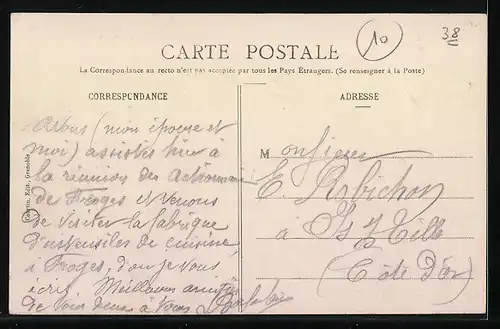 10
38
CARTE POSTALE
La Correspondance au recto n'est pas acceptée par tous les Pays Étrangers. (Se renseigner à la Poste)
CORRESPONDANCE
ADRESSE
(mon épouse et
moi) assister hier à
à la réunion des Actionnaires
de Froges et venons
de visiter la fabrique
d'ustensiles de cuisine
à Froges, d'où je vous
écris. Meilleures amitiés
de nous deux à vous
Monsieur
E. Arbichon
à Is s/ Tille
(Côte d'Or)
Édit., Grenoble